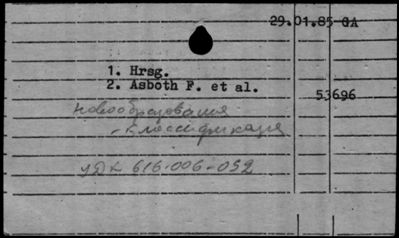 29.01.85 GA
1. Hrsg.
2. Asboth F. et al.
53696
новообразования
- классификация
удк 616-006-052